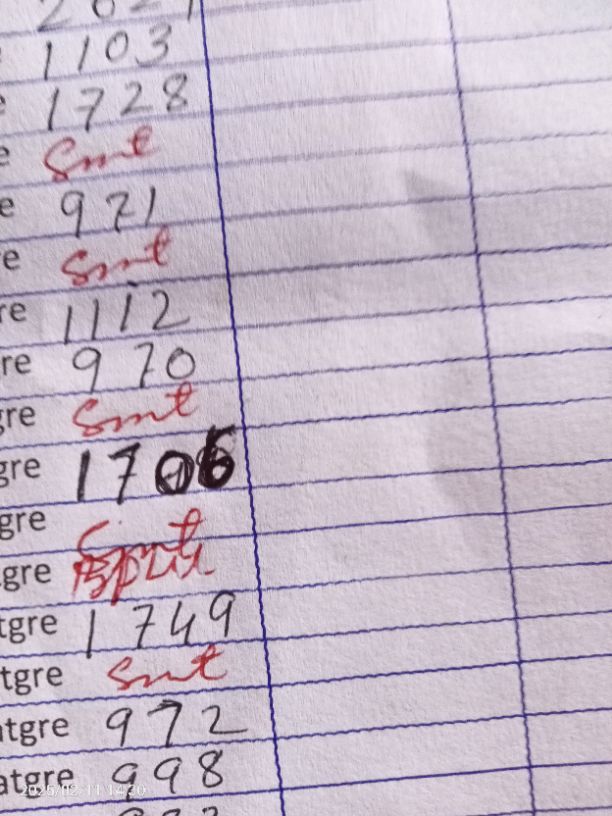 1103
1728
e Smt
e 971
e Smt
re 1112
re 970
gre Smt
gre 1706
gre Smt
gre
tgre 1749
tgre Smt
atgre 972
atgre 998
2025/02/11 14:20